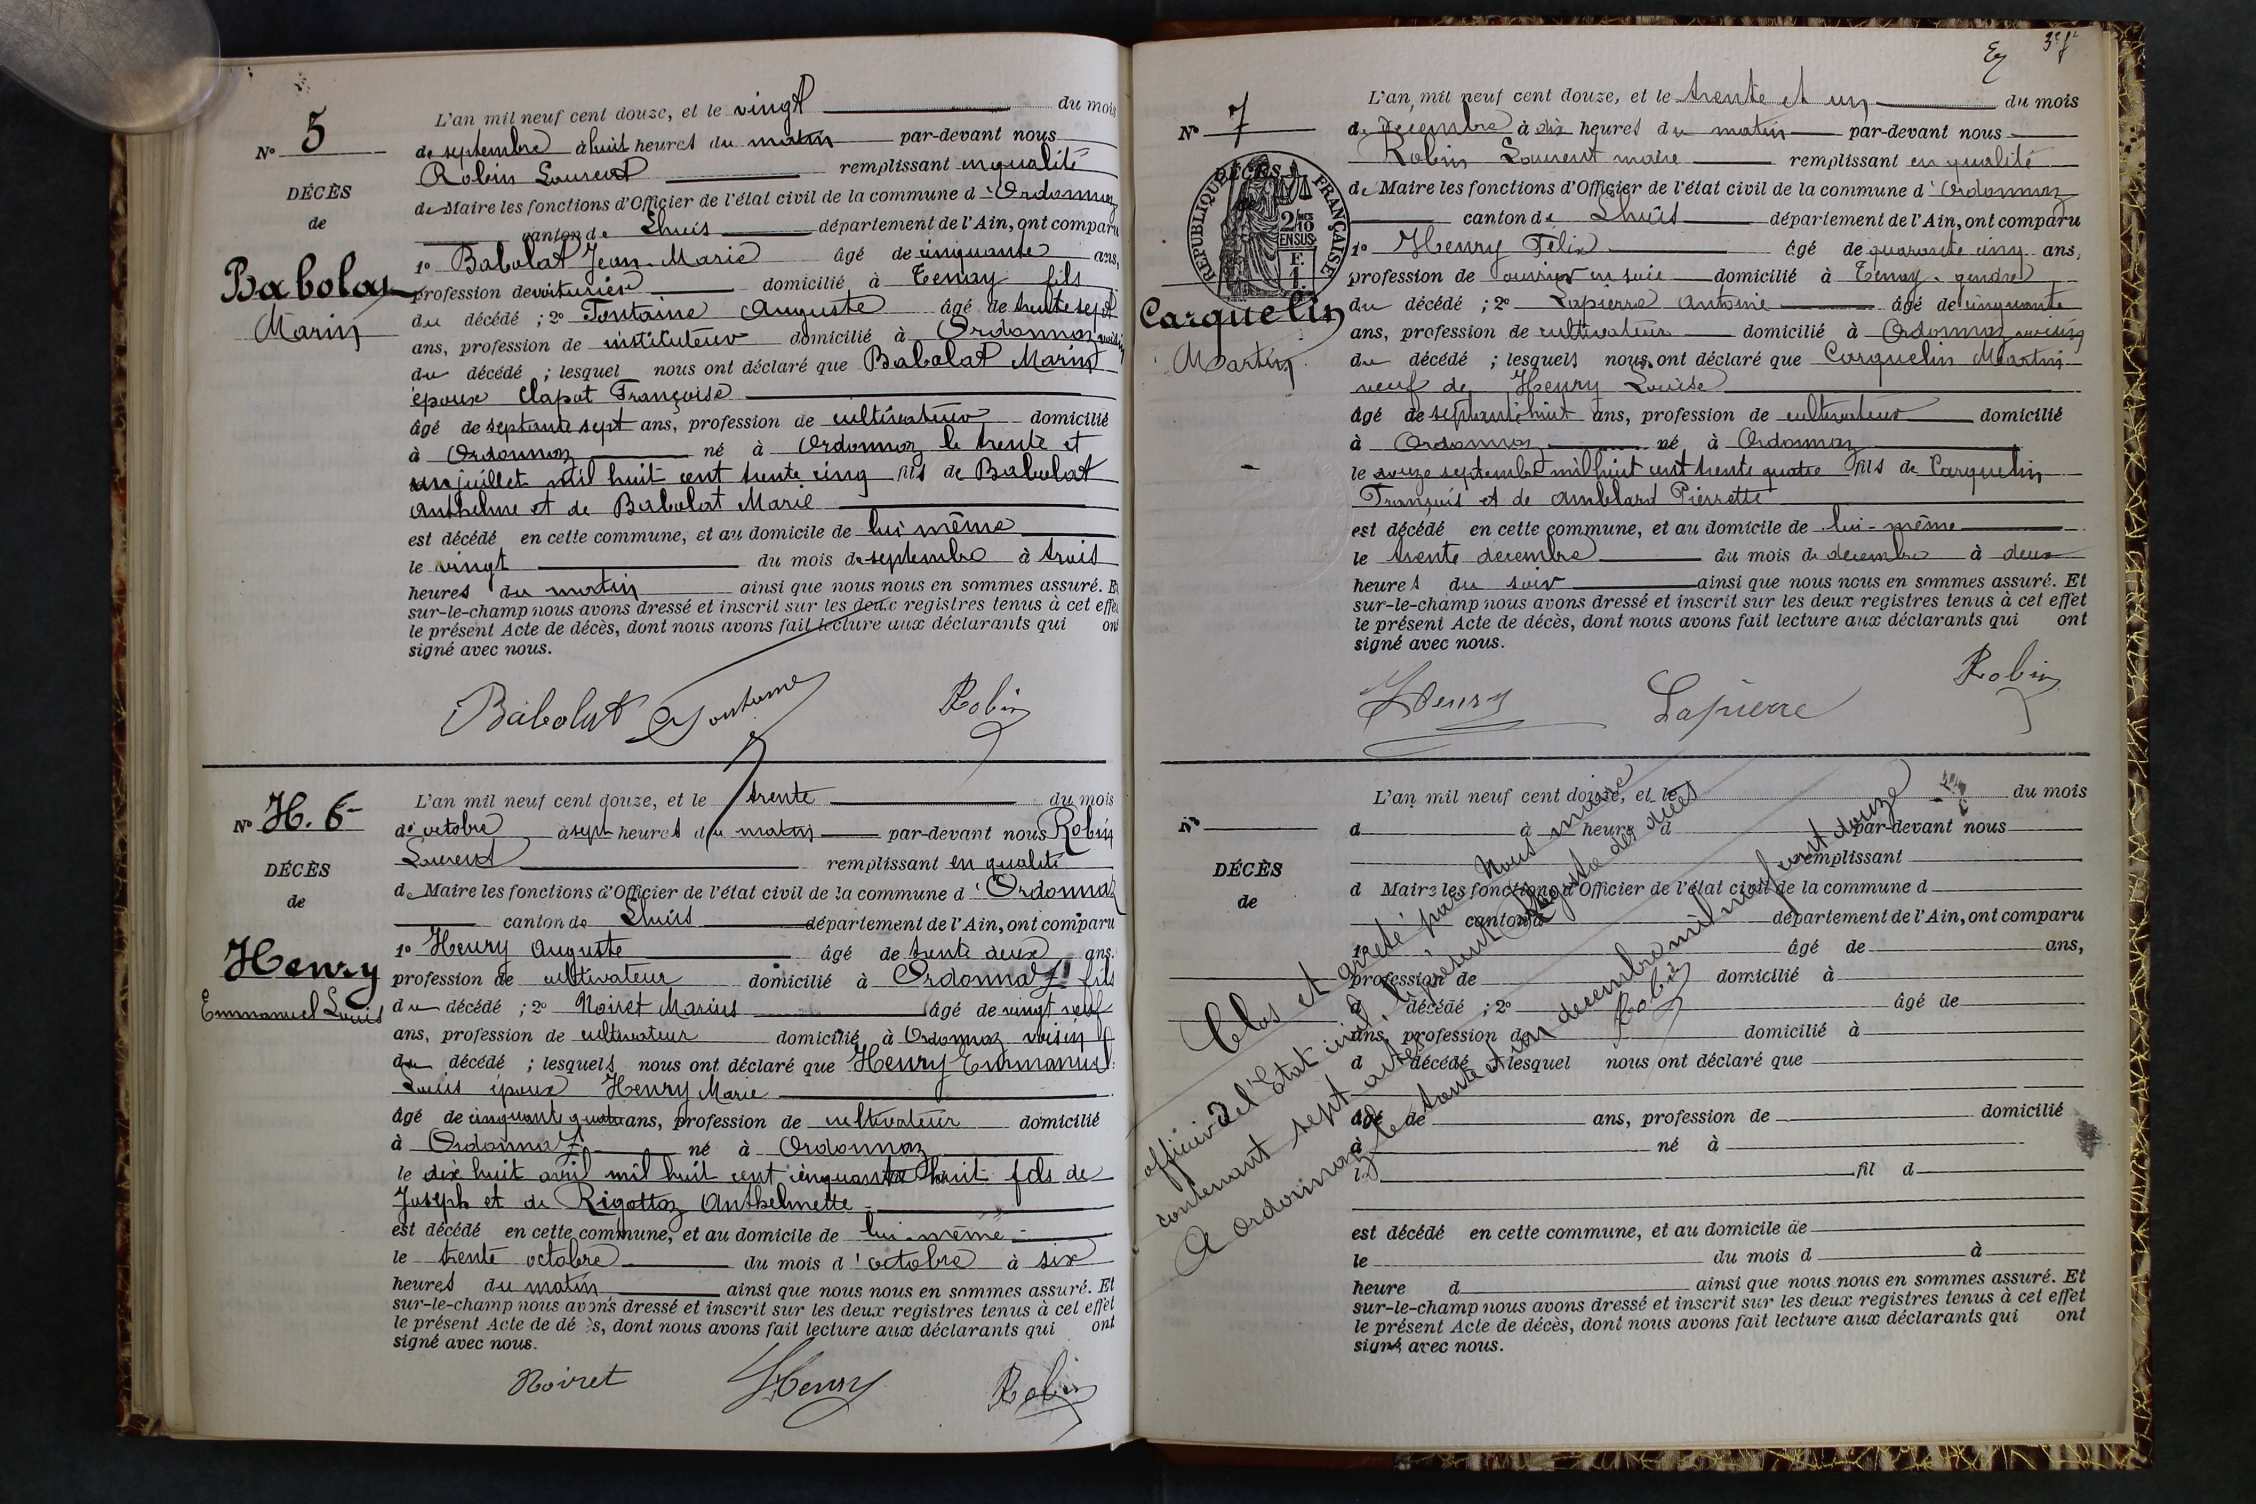 N° 5
DÉCÈS
de
Babolat
Marin
L'an mil neuf cent douze, et le vingt du mois
de septembre à huit heures du matin par-devant nous
Robin Laurent remplissant en qualité
de Maire les fonctions d'Officier de l'état civil de la commune d'Ordonnaz
canton de Lhuis département de l'Ain, ont comparu
1° Babolat Jean-Marie âgé de cinquante ans,
profession de voiturier domicilié à Tenay fils
du décédé ; 2° Fontaine Auguste âgé de trente sept
ans, profession de instituteur domicilié à Ordonnaz voisin
du décédé ; lesquel nous ont déclaré que Babolat Marin
époux Clapot Françoise
âgé de septante sept ans, profession de cultivateur domicilié
à Ordonnaz né à Ordonnaz le trente et
un juillet mil huit cent trente cinq fils de Babolat
Anthelme et de Babolat Marie
est décédé en cette commune, et au domicile de lui même
le vingt du mois de septembre à trois
heures du matin ainsi que nous nous en sommes assuré. Et
sur-le-champ nous avons dressé et inscrit sur les deux registres tenus à cet effet
le présent Acte de décès, dont nous avons fait lecture aux déclarants qui ont
signé avec nous.
Babolat Fontaine Robin
N° H. 6
DÉCÈS
de
Henry
Emmanuel Louis
L'an mil neuf cent douze, et le trente du mois
d'octobre à sept heures du matin par-devant nous Robin
Laurent remplissant en qualité
de Maire les fonctions d'Officier de l'état civil de la commune d'Ordonnaz
canton de Lhuis département de l'Ain, ont comparu
1° Henry Auguste âgé de trente deux ans.
profession de cultivateur domicilié à Ordonnaz fils
du décédé ; 2° Noiret Marius âgé de vingt neuf
ans, profession de cultivateur domicilié à Ordonnaz voisin
du décédé ; lesquels nous ont déclaré que Henry Emmanuel
Louis époux Henry Marie
âgé de cinquant quatre ans, profession de cultivateur domicilié
à Ordonnaz né à Ordonnaz
le dix huit avril mil huit cent cinquante huit fils de
Joseph et de Rigottaz Anthelmette
est décédé en cette commune, et au domicile de lui-même
le trente octobre du mois d'octobre à six
heures du matin ainsi que nous nous en sommes assuré. Et
sur-le-champ nous avons dressé et inscrit sur les deux registres tenus à cet effet
le présent Acte de décès, dont nous avons fait lecture aux déclarants qui ont
signé avec nous.
Noiret Henry Robin
3e f
N° 7
DÉCÈS
de
RÉPUBLIQUE FRANÇAISE
2/10
EN SUS
F.
1.
Carquelin
Martin
L'an mil neuf cent douze, et le trente et un du mois
de décembre à dix heures du matin par-devant nous
Robin Laurent maire remplissant en qualité
de Maire les fonctions d'Officier de l'état civil de la commune d'Ordonnaz
canton de Lhuis département de l'Ain, ont comparu
1° Henry Félix âgé de quarante cinq ans,
profession de ouvrier en soie domicilié à Tenay. gendre
du décédé ; 2° Lapierre Antoine âgé de cinquante
ans, profession de cultivateur domicilié à Ordonnaz voisin
du décédé ; lesquels nous ont déclaré que Carquelin Martin
veuf de Henry Louise
âgé de septante huit ans, profession de cultivateur domicilié
à Ordonnaz né à Ordonnaz
le douze septembre mil huit cent trente quatre fils de Carquelin
François et de Amblard Pierrette
est décédé en cette commune, et au domicile de lui-même
le trente decembre du mois de decembre à deux
heures du soir ainsi que nous nous en sommes assuré. Et
sur-le-champ nous avons dressé et inscrit sur les deux registres tenus à cet effet
le présent Acte de décès, dont nous avons fait lecture aux déclarants qui ont
signé avec nous.
Henry Lapierre Robin
N°
DÉCÈS
de
L'an mil neuf cent douze, et le du mois
d à heure d par-devant nous
remplissant
d Maire les fonctions d'Officier de l'état civil de la commune d
canton d département de l'Ain, ont comparu
1° âgé de ans,
profession de domicilié à
d décédé ; 2° âgé de
ans, profession de domicilié à
d décédé ; lesquel nous ont déclaré que
âgé de ans, profession de domicilié
à né à
le fil d
est décédé en cette commune, et au domicile de
le du mois d à
heure d ainsi que nous nous en sommes assuré. Et
sur-le-champ nous avons dressé et inscrit sur les deux registres tenus à cet effet
le présent Acte de décès, dont nous avons fait lecture aux déclarants qui ont
signé avec nous.
Clos et arrêté par Nous maire
officier de l'Etat civil, le présent Registre des décès
contenant sept actes
A Ordonnaz le trente et un decembre mil neuf cent douze
Robin